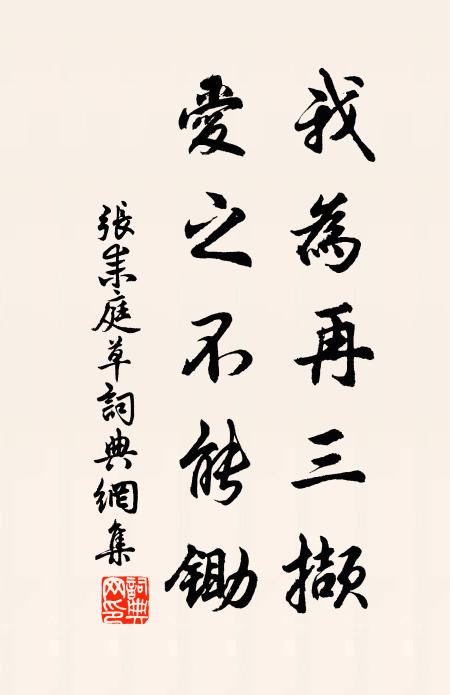 我為再三擷
愛之不能鋤
張耒庭草詞典網集
詞典网印